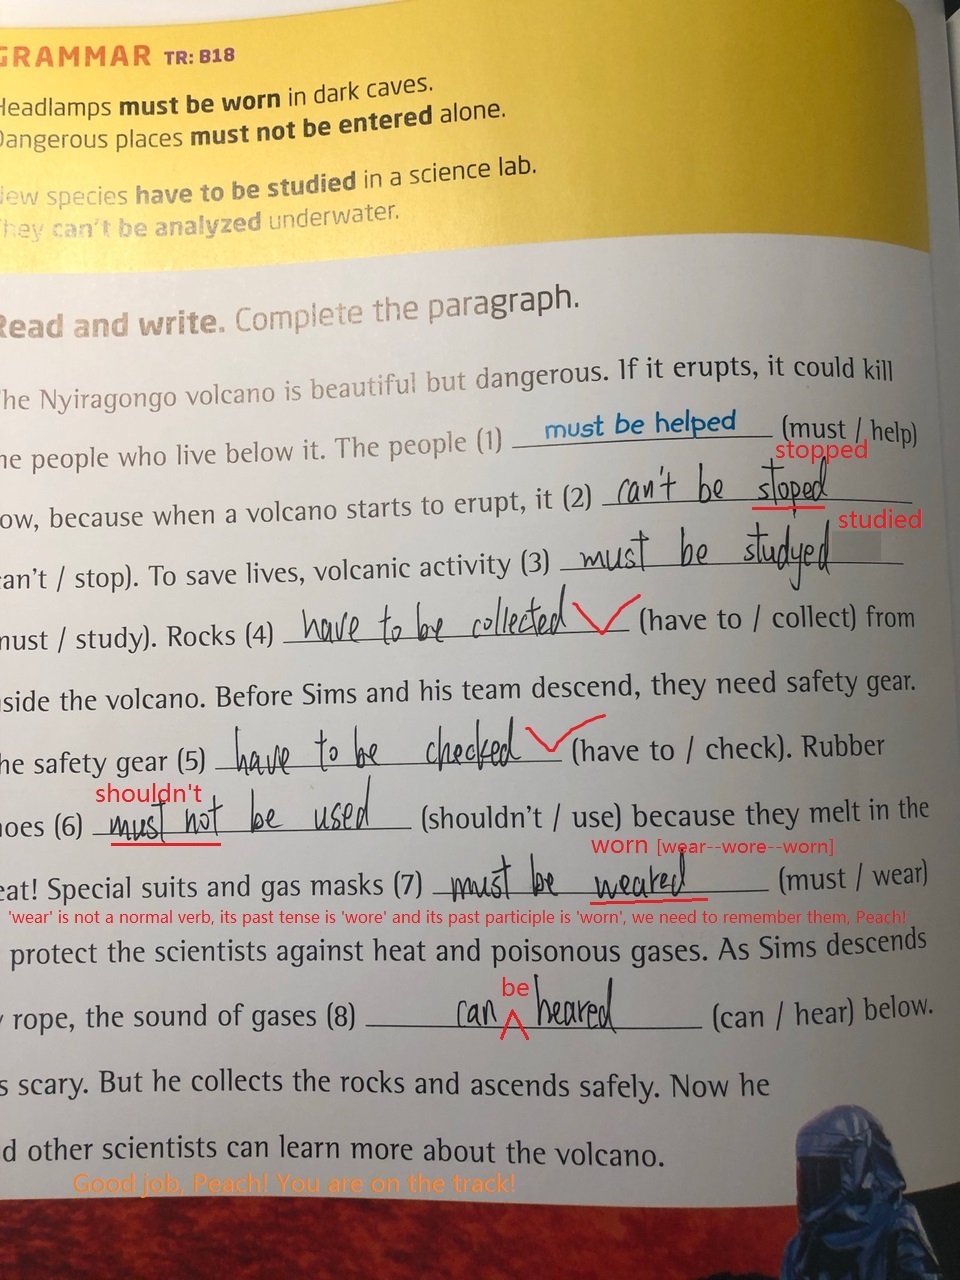 GRAMMAR TR: B18
Headlamps must be worn in dark caves.
Dangerous places must not be entered alone.
New species have to be studied in a science lab.
They can't be analyzed underwater.
Read and write. Complete the paragraph.
The Nyiragongo volcano is beautiful but dangerous. If it erupts, it could kill
he people who live below it. The people (1) must be helped (must / help)
stopped
ow, because when a volcano starts to erupt, it (2) can't be stoped
studied
can't / stop). To save lives, volcanic activity (3) must be studyed
must / study). Rocks (4) have to be collected (have to / collect) from
side the volcano. Before Sims and his team descend, they need safety gear.
he safety gear (5) have to be checked (have to / check). Rubber
shouldn't
hoes (6) must not be used (shouldn't / use) because they melt in the
worn [wear--wore--worn]
eat! Special suits and gas masks (7) must be weared (must / wear)
'wear' is not a normal verb, its past tense is 'wore' and its past participle is 'worn', we need to remember them, Peach!
protect the scientists against heat and poisonous gases. As Sims descends
be
y rope, the sound of gases (8) can heared (can / hear) below.
s scary. But he collects the rocks and ascends safely. Now he
d other scientists can learn more about the volcano.
Good job, Peach! You are on the track!